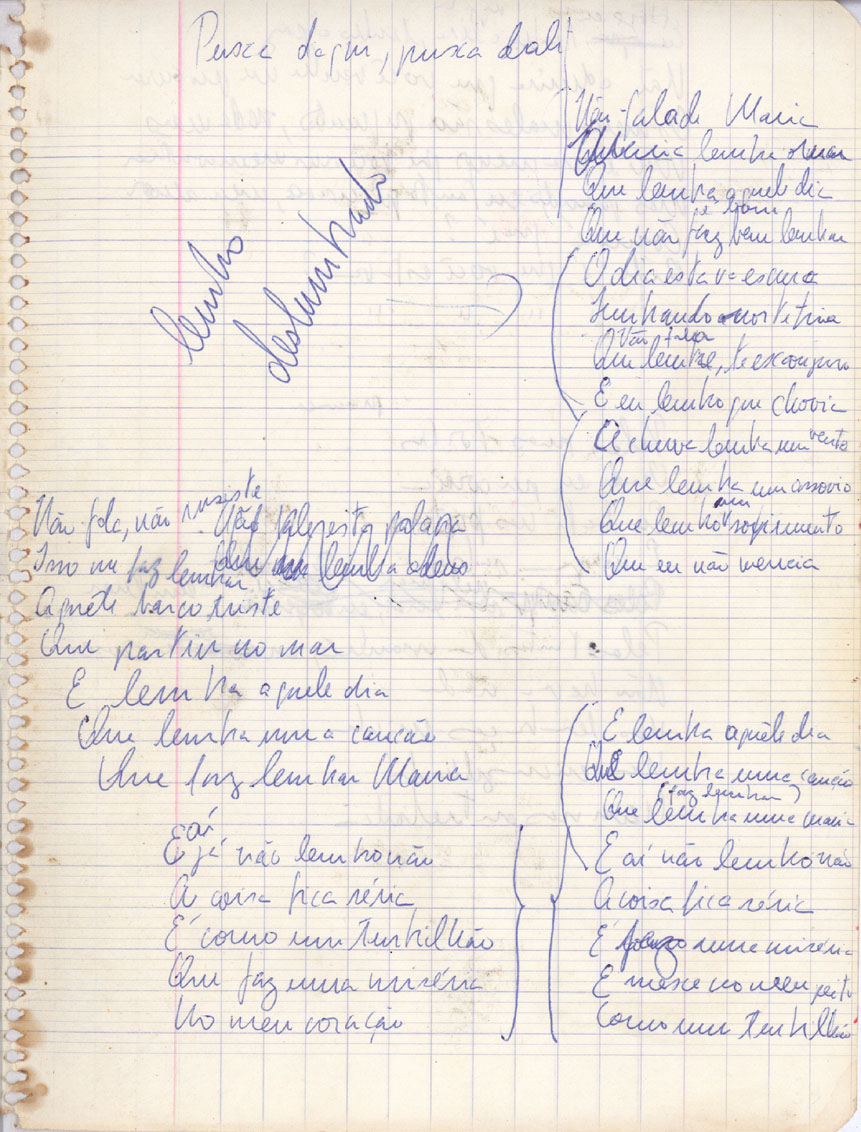 Puxa daqui, puxa dali
Não fala de Maria
Maria lembra o mar
Que lembra aquele dia
é bom
Que não faz bem lembrar
O dia estava escuro
Não fala
Que lembre, te esconjuro
E eu lembro que chovia
A chuva lembra um vento
Que lembra um assovio
um
Que lembra sofrimento
Que eu não merecia
lembro
deslumbrado
Não fala, não insiste
Não fale esta palavra
Isso me faz lembrar
Que lembra adeus
Aquele barco triste
Que partiu no mar
E lembra aquele dia
Que lembra uma canção
Que faz lembrar Maria
aí
E já não lembro não
A coisa fica séria
É como um turbilhão
Que faz uma miséria
No meu coração
E lembra aquêle dia
Que lembra uma canção
(faz lembrar)
Que lembra uma maria
E aí não lembro não
A coisa fica séria
É uma miséria
E mexe no meu peito
Como um turbilhão